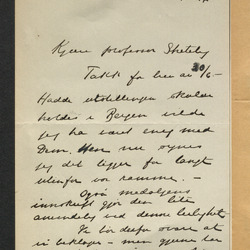 Kjære professor Shetelig
Takk for brev av 20/6 -
Hadde utstillingen skulde
holdes i Bergen vilde
jeg ha vært enig med
Dem. Men nu synes
jeg det ligger for langt
utenfor vor ramme. -
Også medaljens
innskrift gjør den lite
anvendelig ved denne leilighet
Vi bør derfor svare at
vi beklager - men